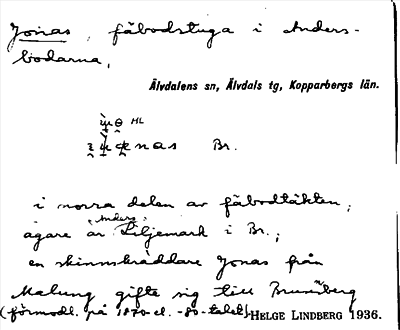 Jonas, fäbodstuga i Anders-
bodarna,
Älvdalens sn, Älvdals tg, Kopparbergs län.
HL
Br.
i norra delen av fäbodtäkten;
ägare är Anders Liljemark i Br.;
en skinnskräddare Jonas från
Malung gifte sig till Brunnsberg
(förmodl. på 1870-el. -80-talet) HELGE LINDBERG 1936.